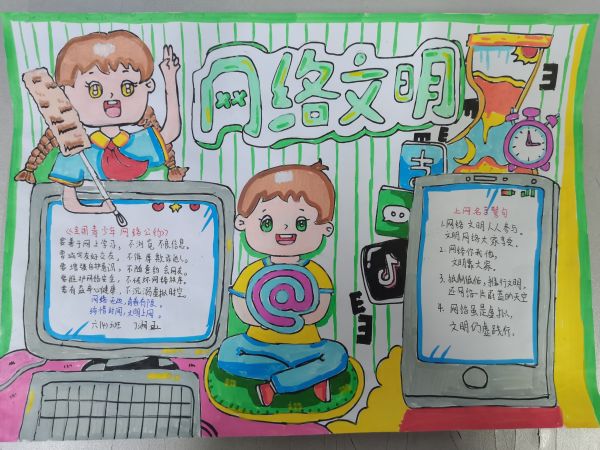 网络文明
《全国青少年网络公约》
要善于网上学习，不浏览不良信息。
要诚实友好交流，不侮辱欺诈他人。
要增强自护意识，不随意约会网友。
要维护网络安全，不破坏网络秩序。
要有益身心健康，不沉溺虚拟时空。
网络无边，青春有限。
珍惜时间，文明上网。
上网名言警句
1.网络文明人人参与，
文明网络大家享受。
2.网络你我他，
文明靠大家。
3.抵制低俗，推行文明，
还网络一片蔚蓝的天空
4.网络虽是虚拟，
文明仍需践行。
支
@